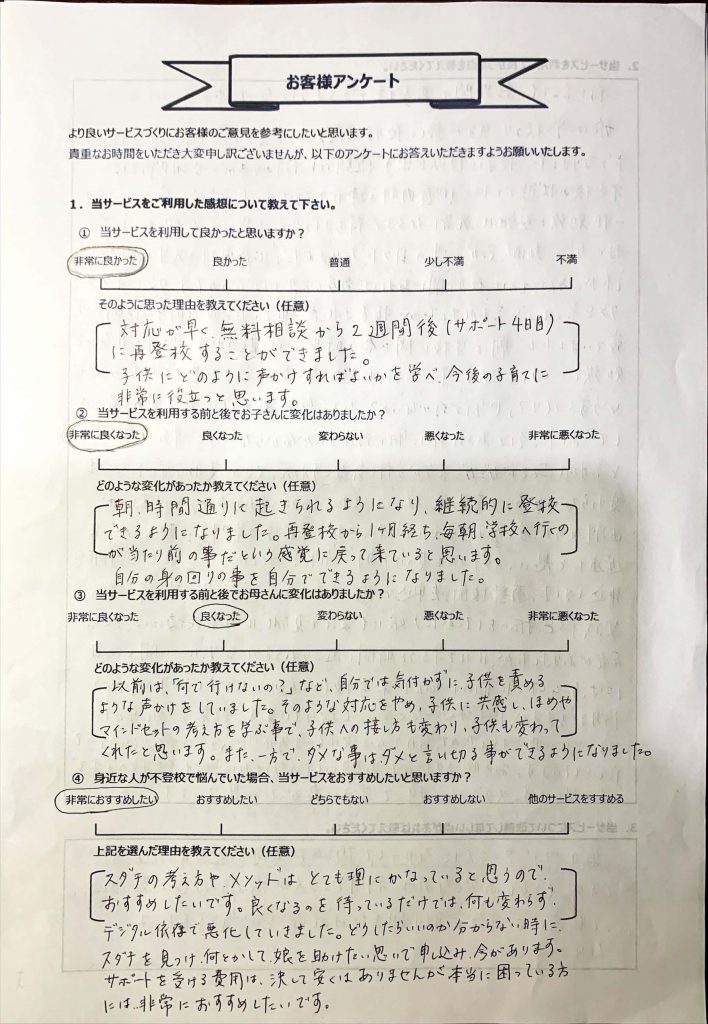 お客様アンケート
より良いサービスづくりにお客様のご意見を参考にしたいと思います。
貴重なお時間をいただき大変申し訳ございませんが、以下のアンケートにお答えいただきますようお願いいたします。
1．当サービスをご利用した感想について教えて下さい。
① 当サービスを利用して良かったと思いますか？
非常に良かった 良かった 普通 少し不満 不満
そのように思った理由を教えてください（任意）
対応が早く、無料相談から2週間後(サポート4日目)
に再登校することができました。
子供にどのように声かけすればよいかを学べ、今後の子育てに
非常に役立つと思います。
② 当サービスを利用する前と後でお子さんに変化はありましたか？
非常に良くなった 良くなった 変わらない 悪くなった 非常に悪くなった
どのような変化があったか教えてください（任意）
朝、時間通りに起きられるようになり、継続的に登校
できるようになりました。再登校から1ヶ月経ち、毎朝、学校へ行くの
が当たり前の事だという感覚に戻って来ていると思います。
自分の身の回りの事を自分でできるようになりました。
③ 当サービスを利用する前と後でお母さんに変化はありましたか？
非常に良くなった 良くなった 変わらない 悪くなった 非常に悪くなった
どのような変化があったか教えてください（任意）
以前は、「何で行けないの？」など、自分では気付かずに、子供を責める
ような声かけをしていました。そのような対応をやめ、子供に共感し、ほめや
マインドセットの考え方を学ぶ事で、子供への接し方も変わり、子供も変わって
くれたと思います。また、一方で、ダメな事はダメと言い切る事ができるようになりました。
④ 身近な人が不登校で悩んでいた場合、当サービスをおすすめしたいと思いますか？
非常におすすめしたい おすすめしたい どちらでもない おすすめしない 他のサービスをすすめる
上記を選んだ理由を教えてください（任意）
スダチの考え方や、メソッドは とても理にかなっていると思うので、
おすすめしたいです。良くなるのを待っているだけでは、何も変わらず、
デジタル依存で悪化していきました。どうしたらいいのか分からない時に、
スダチを見つけ、何とかして、娘を助けたい思いで申し込み、今があります。
サポートを受ける費用は、決して安くはありませんが本当に困っている方
には、非常におすすめしたいです。